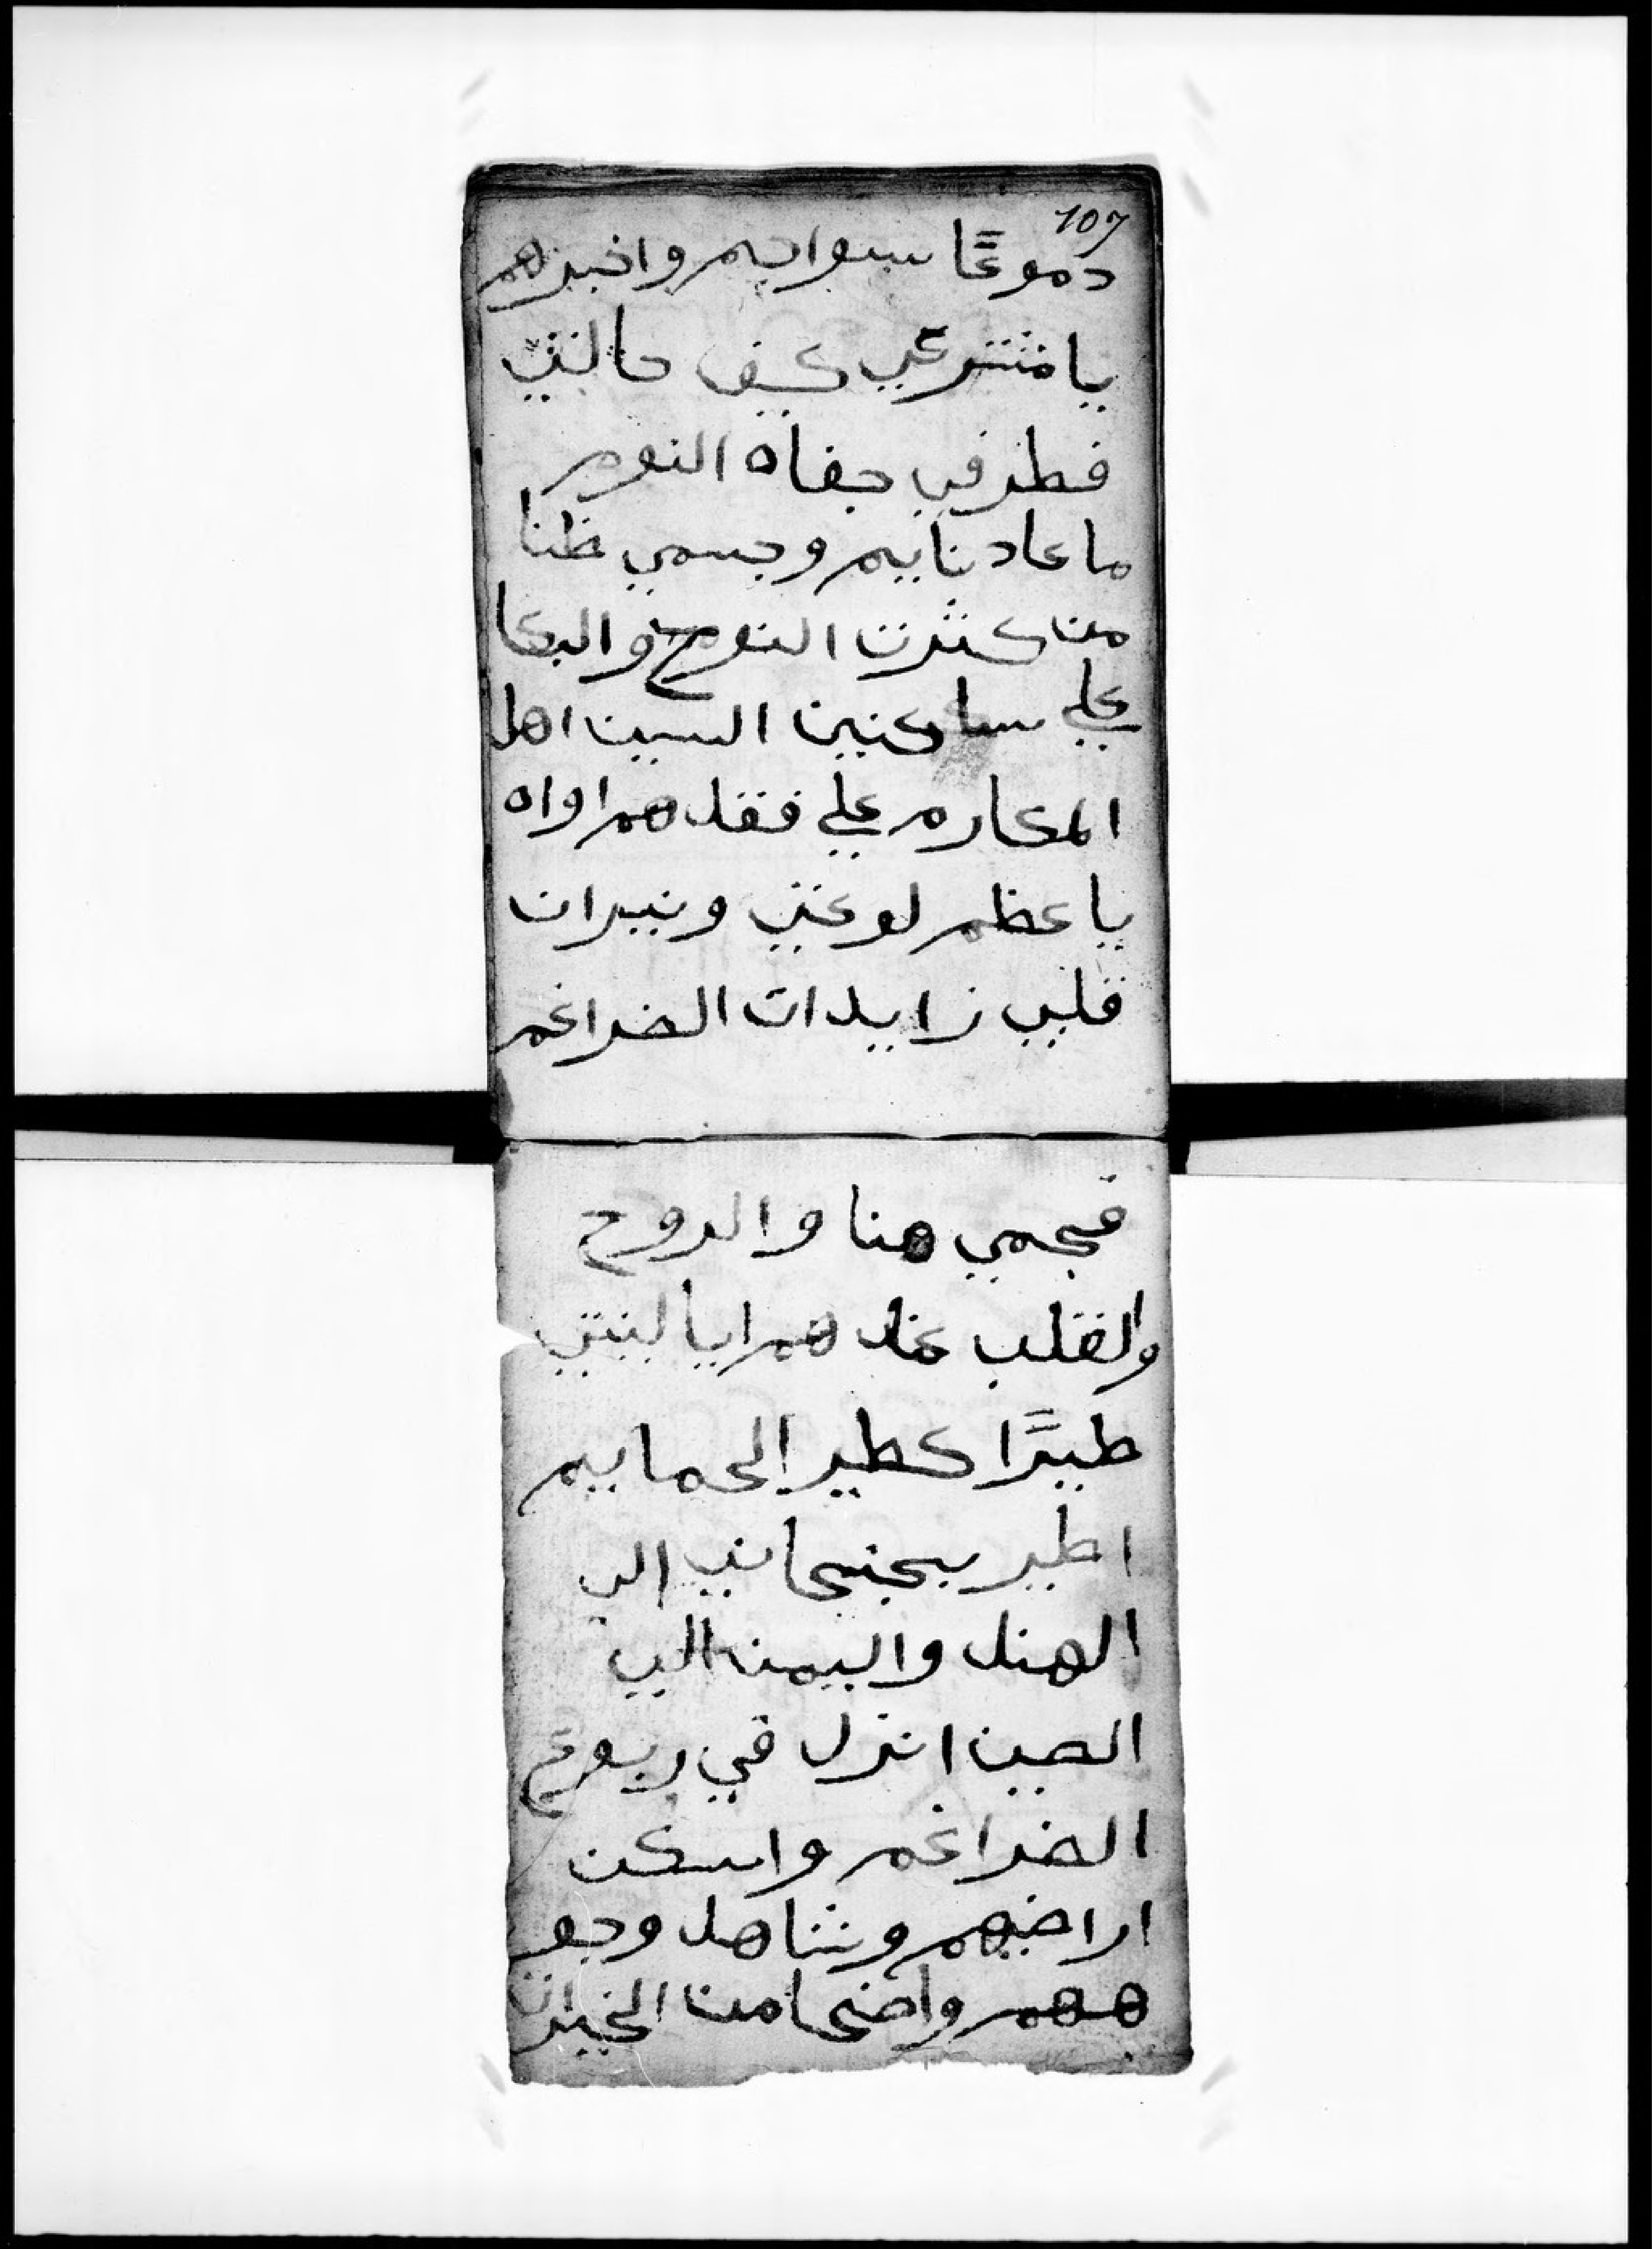 107
دموعًا سوايم واخبرهم
يا مشرعي كيف حالتي
فطرفي جفاه النوم
ما عاد نايم وجسمي ظنا
من كثرت النوح والبكا
علي ساكنين السين اهل
المكارم علي فقدهم اواه
يا عظم لوعتي ونيران
قلبي زايدات الضراغم
فجمي هنا والروح
والقلب عندهم ايا ليتني
طيرًا كطير الحمايم
اطير بجنحاني الي
الهند واليمن الي
الصين انزل في ربوع
الضراغم واسكن
اراضيهم وشاهد وجو
ههم واضحا من الخيرات